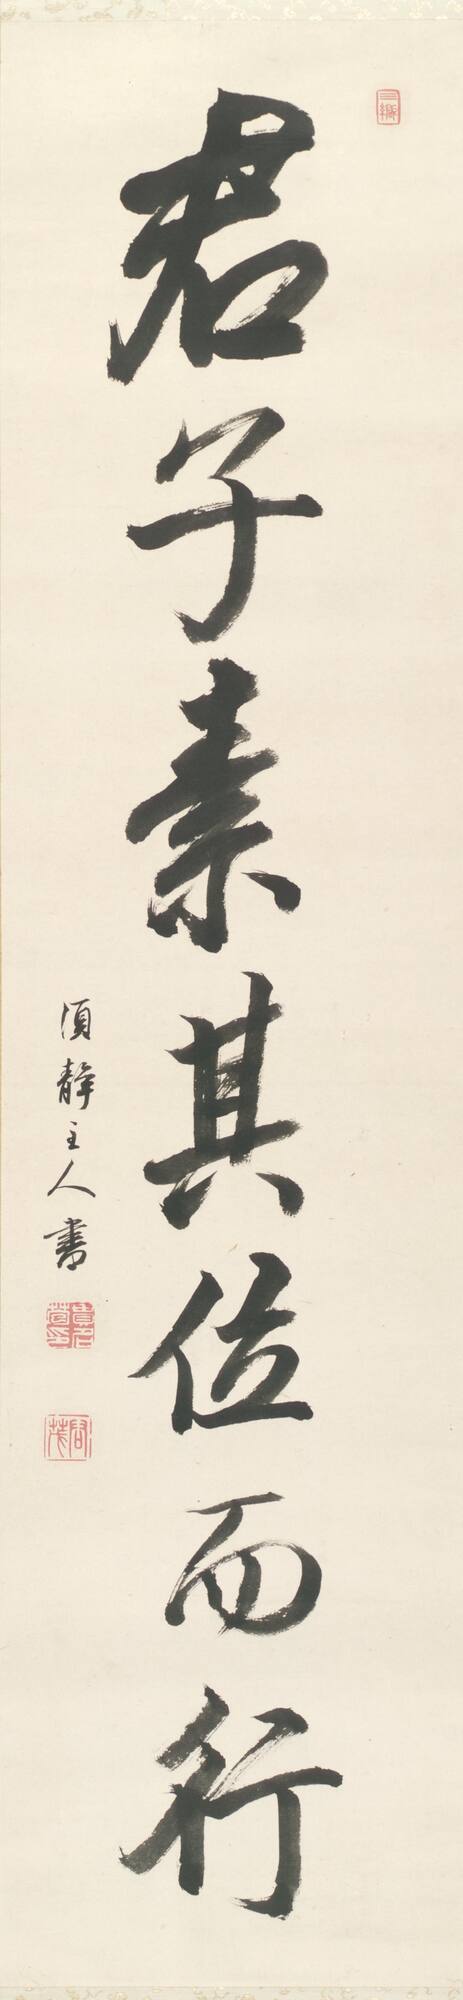 君子素其位而行
須静主人書